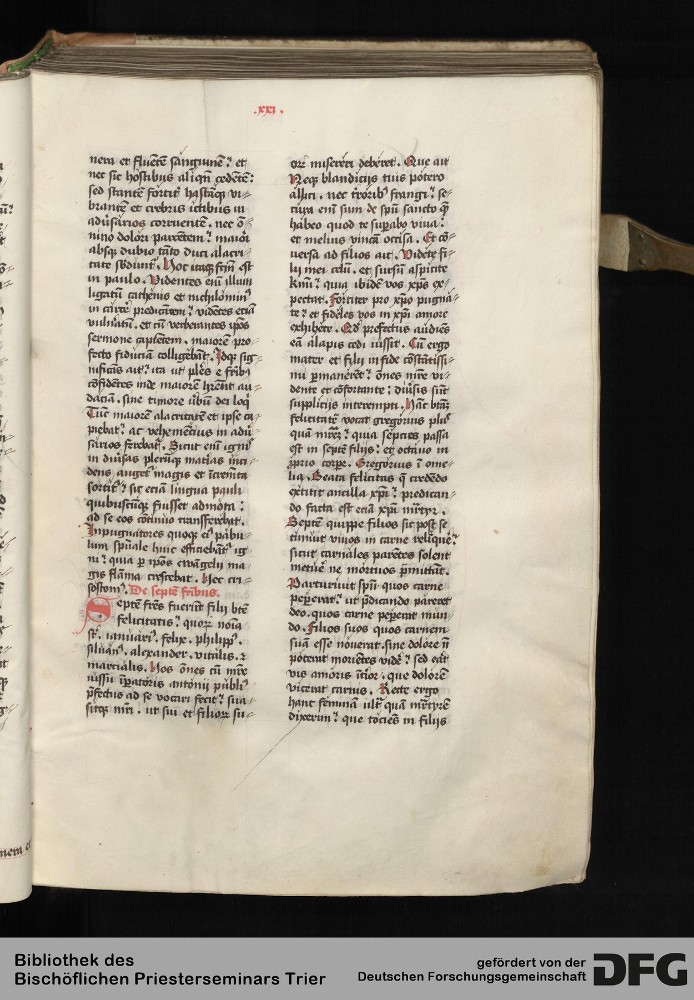 .xxi.
nera et fluētē sāguinē? et
nec sic hostibus aliqn̄ cedētē:
sed stantē fortit᷑ hastāq̄ vi-
brantē et crebris ictibus in
adūsarios corruentē. nec ō-
nino dolori parcētem? maiori
absq̨ dubio tāto duci alacri-
tate sbdunt᷑. Hoc itaq̨ fr̄m est
in paulo. Videntes em̄ illum
ligatū cathenis et nichylomin᷒
in carcē predicātem? videtēs eciā
vulnatū. et cū verberantes ip̄os
sermone capientem. maiorē pro-
fecto fiduciā colligebāt. Idq̨ sig-
nificās ait? ita ut plēs e frīb᷒
cōfidētes inde maiorē hr̄ent au-
daciā. sine timore ūbū dei loq̄
Tūc maiorē alacritatē et ipse ca-
piebat? ac vehemētius in adū-
sarios ferebat᷑. Sicut em̄ igni᷒
in diūsas plerūq̨ maties inci-
dens auget᷑ magis et incrm̄ta
sortit᷑? sic eciam lingua pauli
quibuscūq̨ fuisset admota:
ad se eos cōtinuo transferebat.
Inpugnatores quoq̨ ei᷒ pabu-
lum spūale huic efficiebāt᷑ ig-
ni? quia p̱ ip̄os ewāgelii ma-
gis flāma crescebat. Hec cri-
sostom᷒. De septē frībus.
Septē frēs fuerūt filii btē
felicitatis? quoꝝ noīa
sr̄. ianuari᷒. felix. philipp᷒.
siluan᷒. alexander. vitalis. ⁊
marcialis. Hos ōnes cū mr̄e
iussu īp̱atoris antonii publi᷒
p̄fectus ad se vocari fecit? sua-
sitq̨ mr̄i. ut sui et filioꝝ su-
oꝝ misereri deberet. Que ait
Neq̨ blandiciis tuis potero
allici. nec t᷑roribꝰ frangi? se-
cura em̄ sum de spū sancto q̄
habeo quod te sup̱abo viua?
et melius vincā occisa. Et cō-
uersa ad filios ait. Videte fi-
lii mei celū. et sursū aspicite
km̄i? quia ibidē vos xp̄s ex-
pectat. Fortiter pro xp̄o pugna-
te? et fideles vos in xp̄i amore
exhibete. Qd̄ prefectus audiēs
eā alapis cedi iussit. Cū ergo
mater et filii in fide cōstātissi-
mi p̱maneret? ōnes mr̄e vi-
dente et cōfortante? diūsis sūt
suppliciis interempti. Hāc btā
felicitatē vocat gregorius plus᷒
quā mr̄em? quia sepcies passa
est in septē filiis? et octauo in
ꝓprio corpe. Gregorius ī ome-
lia. Beata felicitas q̄ credēdo
extitit ancilla xp̄i? predican-
do facta est eciā xp̄i mr̄tyr.
Septē quippe filios sic post se
timuit viuos in carne relīque?
sicut carnales parētes solent
metue᷑ ne mortuos p̱mittāt.
Parturiuit spū quos carne
pep̱erat? ut p̄dicando pareret
deo. quos carne pep̱erat mun-
do. Filios suos quos carnem
suā esse nouerat. sine dolore n̄
poterat moriētes vidē? sed erat
vis amoris īt᷑ior. que dolorē
viceret carnis. Recte ergo
hanc feminā ult᷑ quā mr̄tyrē
dixerim? que tocies in filiis
nera et
Bibliothek des
Bischöflichen Priesterseminars Trier
gefördert von der
Deutschen Forschungsgemeinschaft
DFG